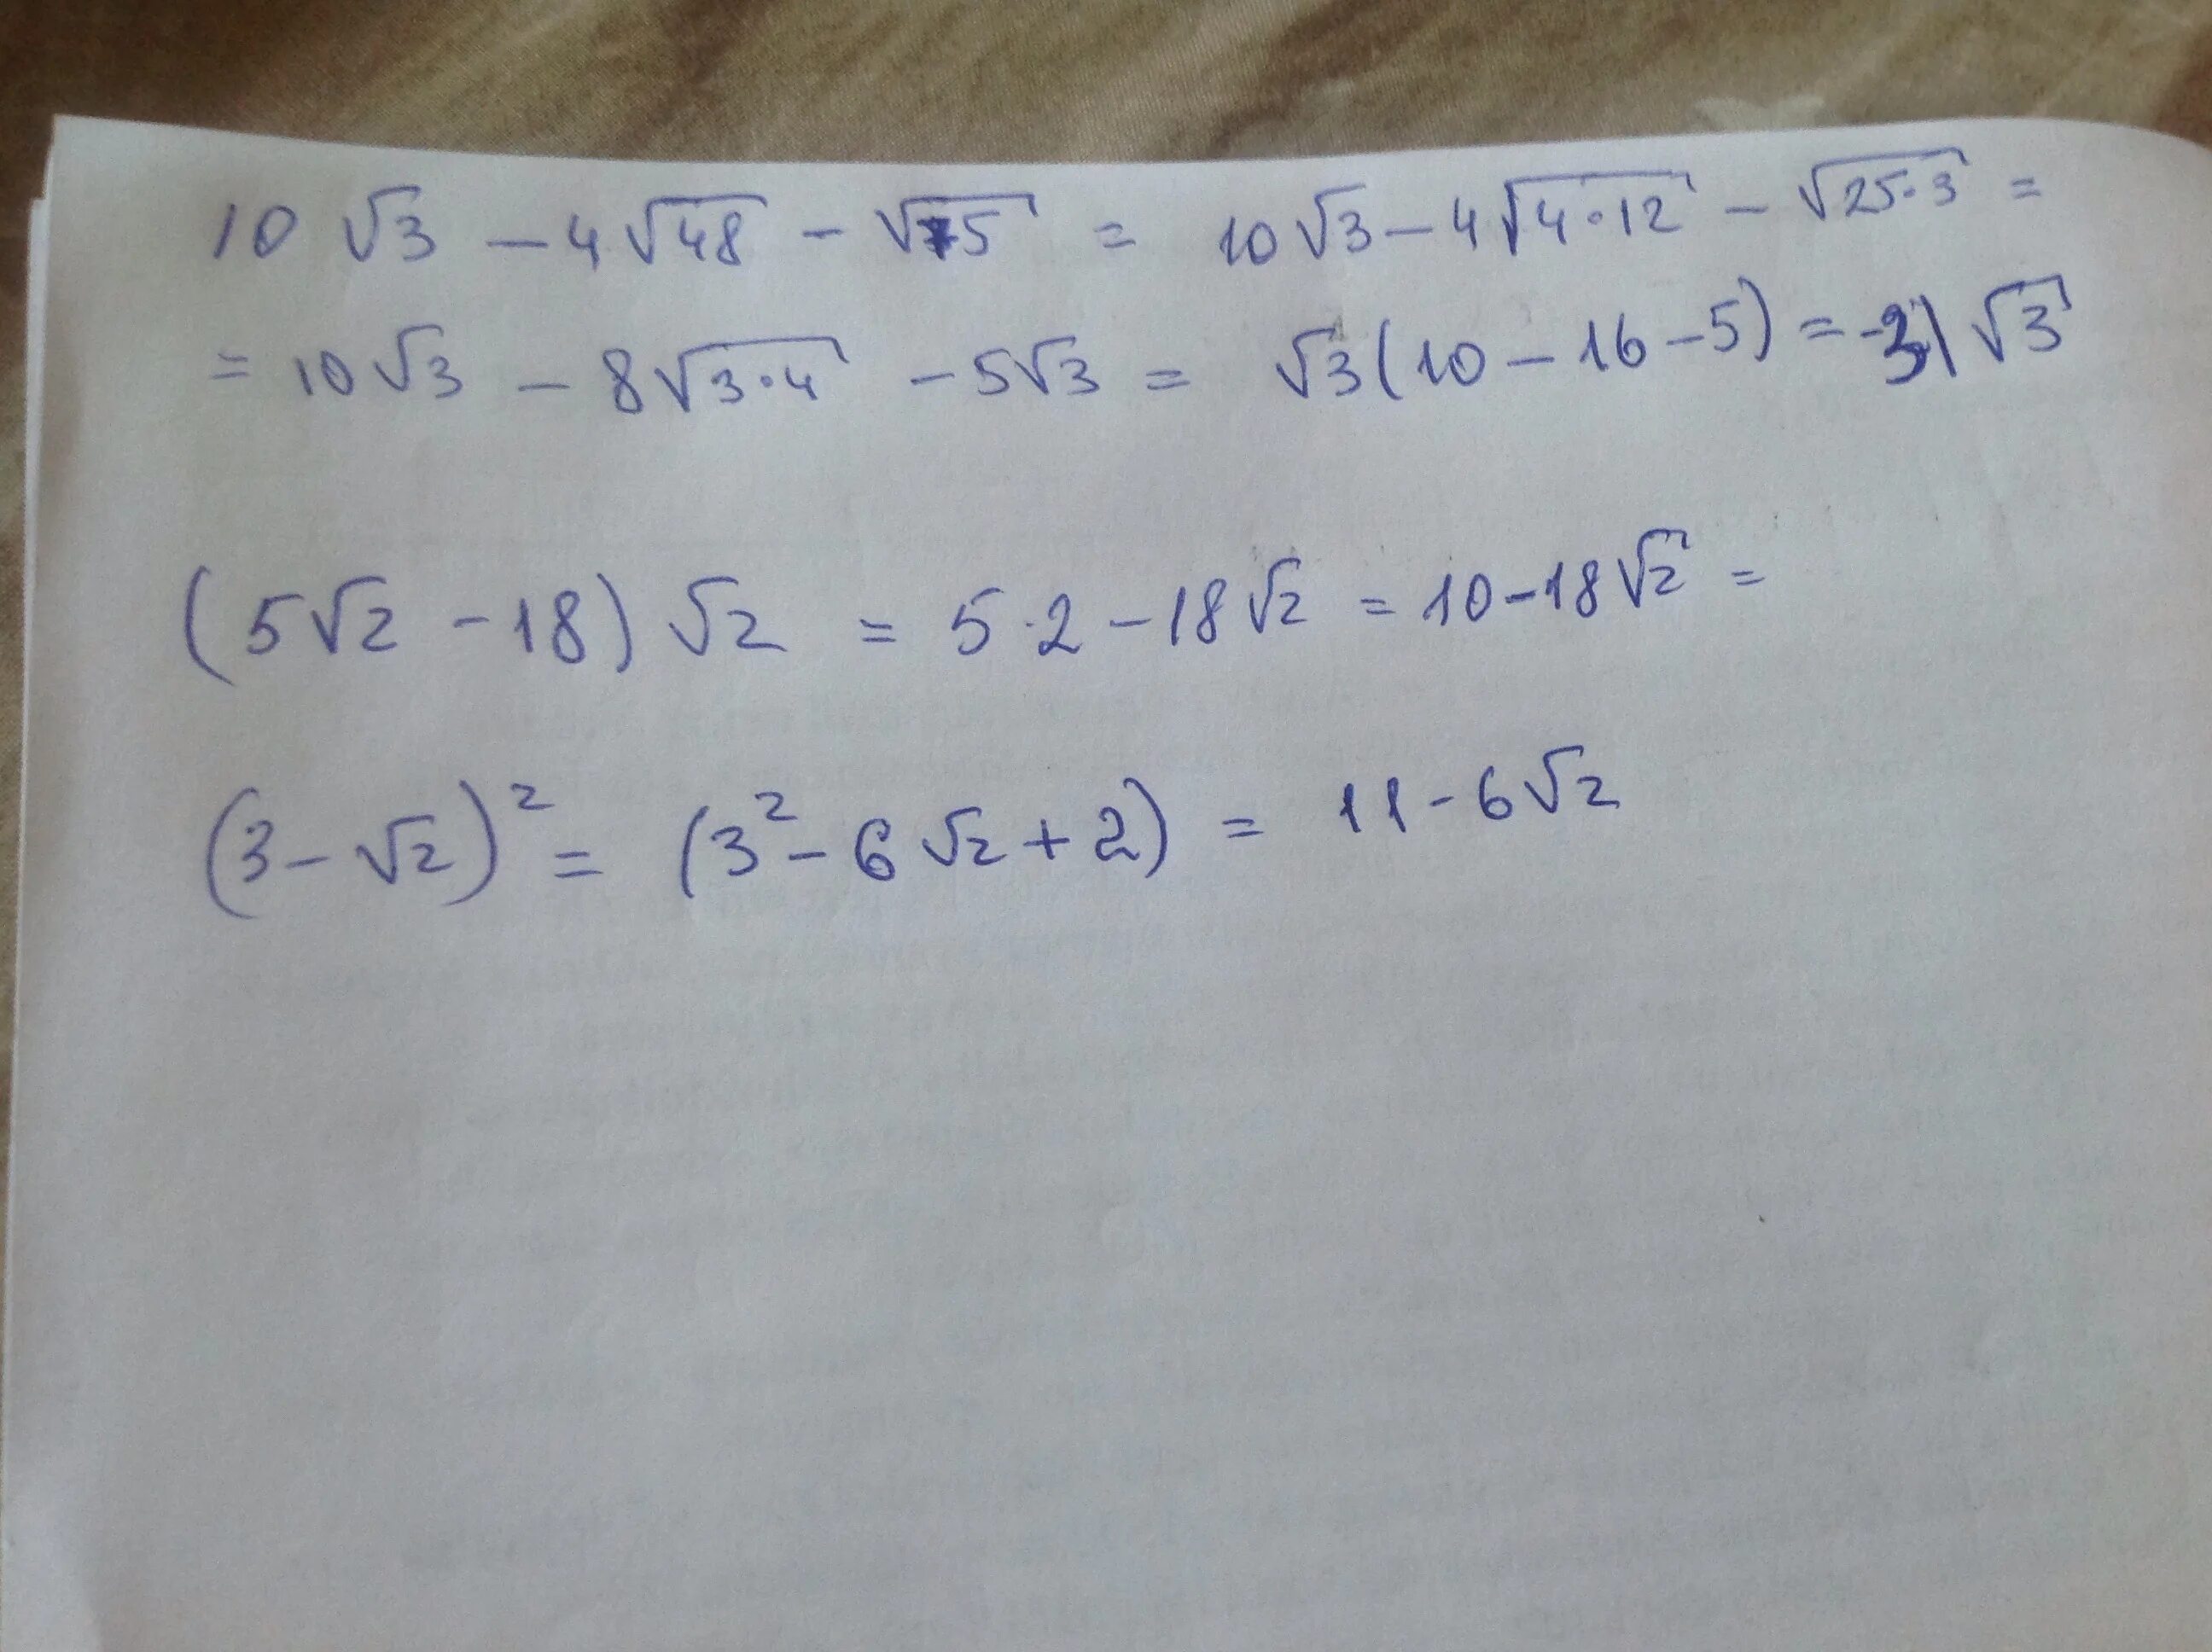 10 √3 − 4√48 − √75 = 10√3 − 4√4·12 − √25·3 =
= 10√3 − 8√3·4 − 5√3 = √3(10 − 16 − 5) = √3
(5√2 − 18) √2 = 5·2 − 18√2 = 10 − 18√2 =
(3 − √2)² = (3² − 6√2 + 2) = 11 − 6√2